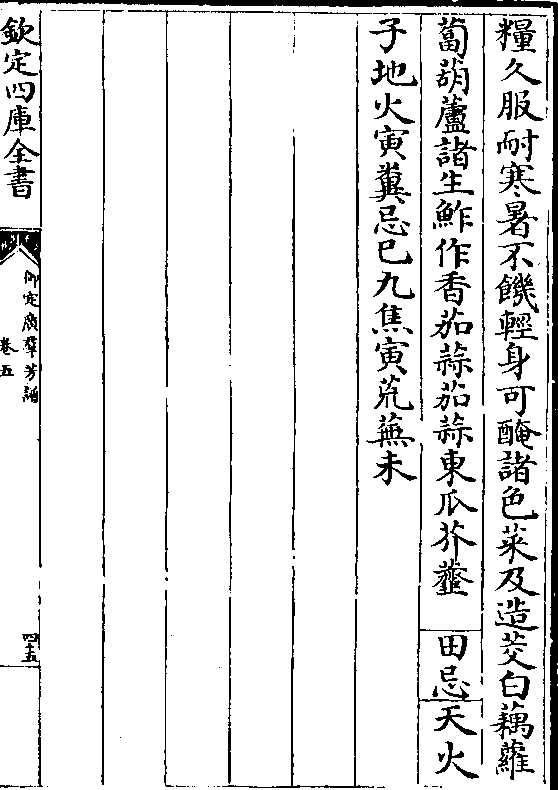 糧久服耐寒暑不饑輕身可醃諸色菜及造茭白藕蘿
蔔葫蘆諸生鮓作香茄蒜茄蒜東瓜芥虀 田忌天火
子地火寅糞忌巳九焦寅荒蕪未
欽定四庫全書
御定廣羣芳譜
卷五
四十五